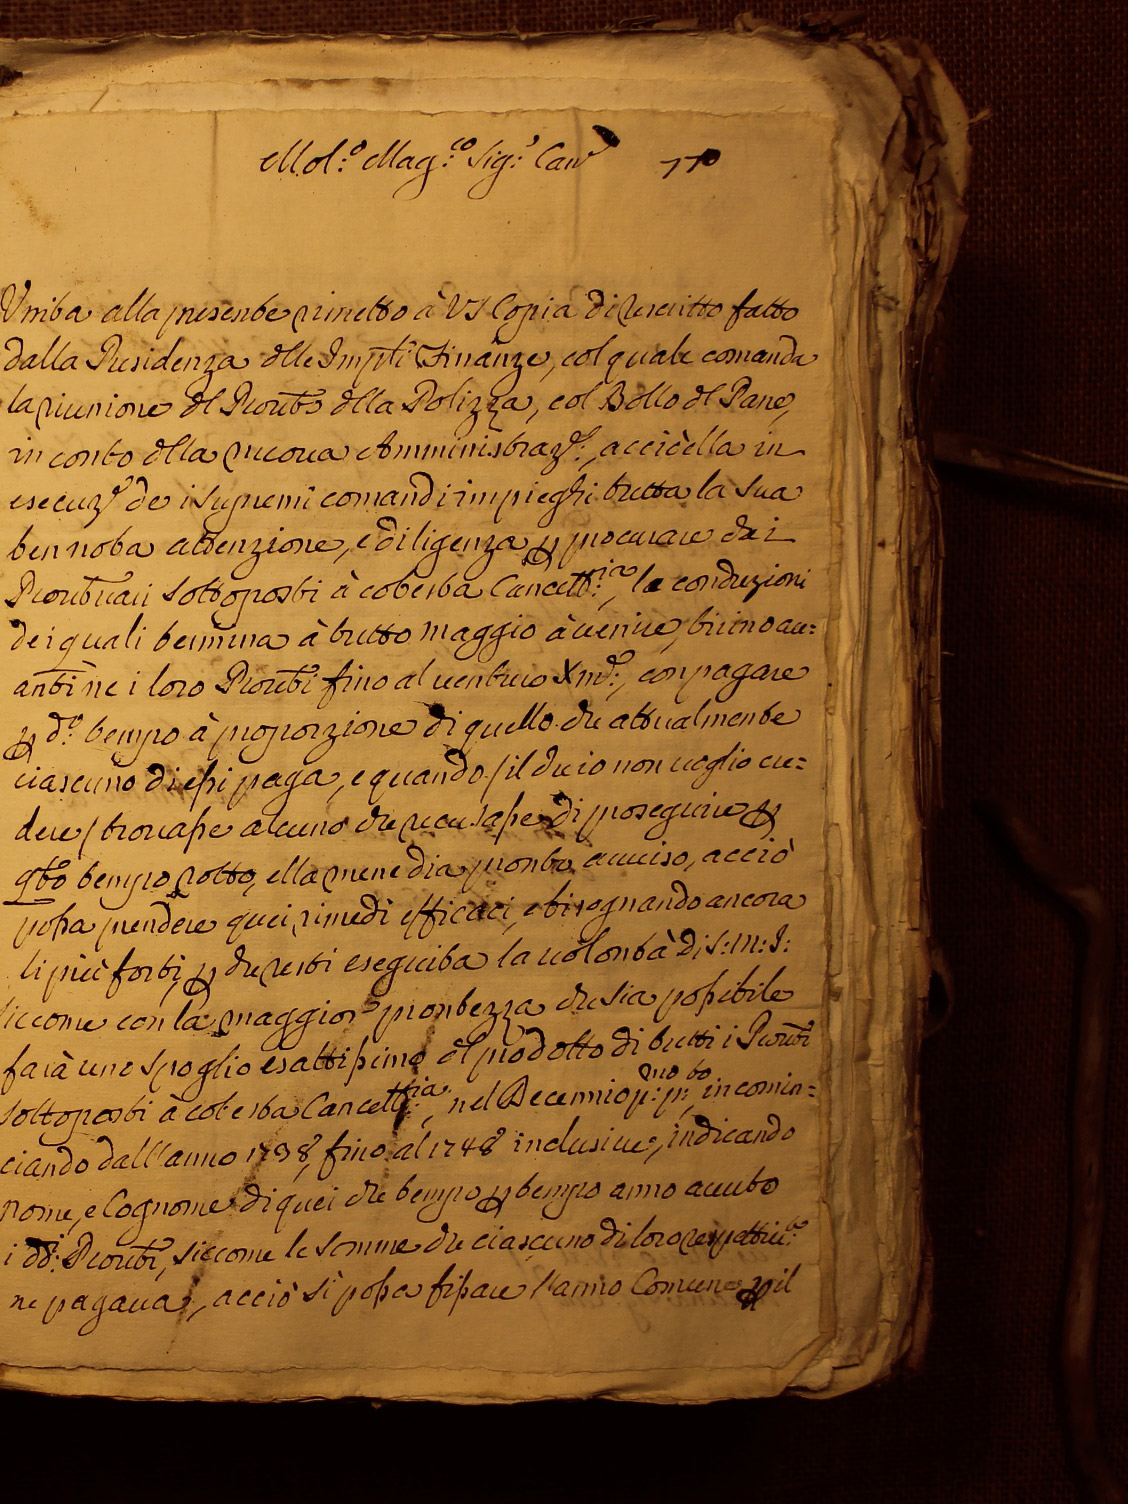 Mol:o Mag:co Sig:r Canc 770
Unita alla presente rimetto à VS Copia di Rescritto fatto
dalla Presidenza dlle Impli Finanze, col quale comanda
la riunione dl Prouto dlla Polizza, col Bollo dl Pane,
in conto dlla nuoua Amministraze:, acciò ella in
esecuze de i supremi comandi impieghi tutta la sua
ben nota attenzione, e diligenza p procurare che i
Proutuarii sottoposti à cotesta Cancellria:, le conduzioni
dei quali termina à tutto Maggio à uenire, tirino au=
anti ne i loro Prouti fino al uenturo Xmbe:, con pagare
p do: tempo à proporzione di quello che attualmente
ciascuno di essi paga, e quando /il che io non uoglio cre=
dere/ trouasse alcuno che recusasse di proseguire p
qto tempo rotto, ella mene dia pronto auuiso, acciò
possa prendere quei rimedi efficaci, e bisognando ancora
li più forti, p che resti eseguita la uolontà di S:M:I:
siccome con la maggior prontezza che sia possibile
farà uno spoglio esattissimo dl prodotto di tutti i Prouti
sottoposti à cotesta Cancellria:, nel Decennio p:mo p:to, incomin=
ciando dall'anno 1738, fino al 1748 inclusiue, indicando
nome, e Cognome di quei che tempo p tempo anno auuto
i ddi: Prouti, siccome le somme che ciascuno di loro respettiute:
ne pagaua, acciò si possa fissare l'anno Comune p il